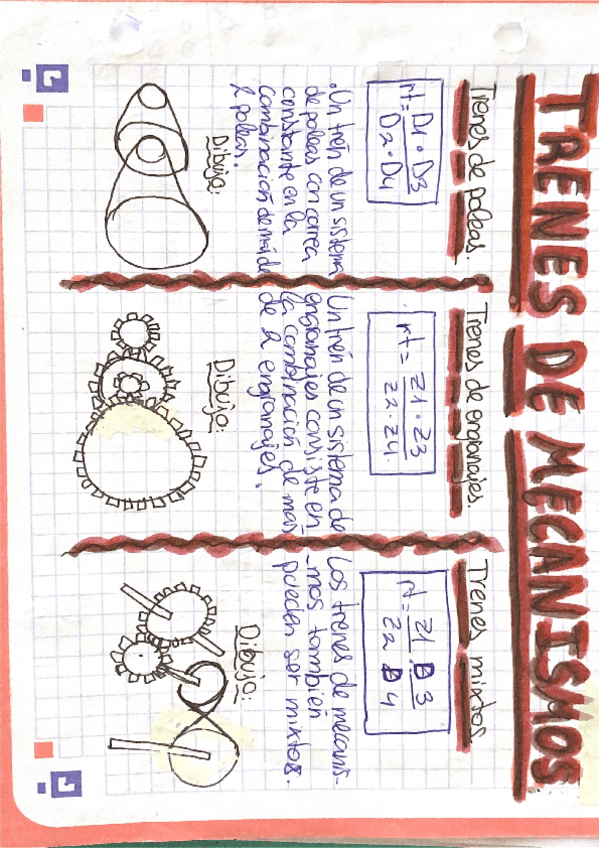 TRENES DE MECANISMOS
Trenes de poleas.
rt = D1 · D3
D2 · D4
.Un tren de un sistema
de poleas con correa
constante en la
combinación de más de
2 poleas.
Dibujo:
Trenes de engranajes.
rt = z1 · z3
z2 · z4.
Un tren de un sistema de
engranajes consiste en
la combinación de más
de 2 engranajes.
Dibujo:
Trenes mixtos
rt = z1 · D3
z2 D4
Los trenes de mecanis-
-mos también
pueden ser mixtos.
Dibujo: